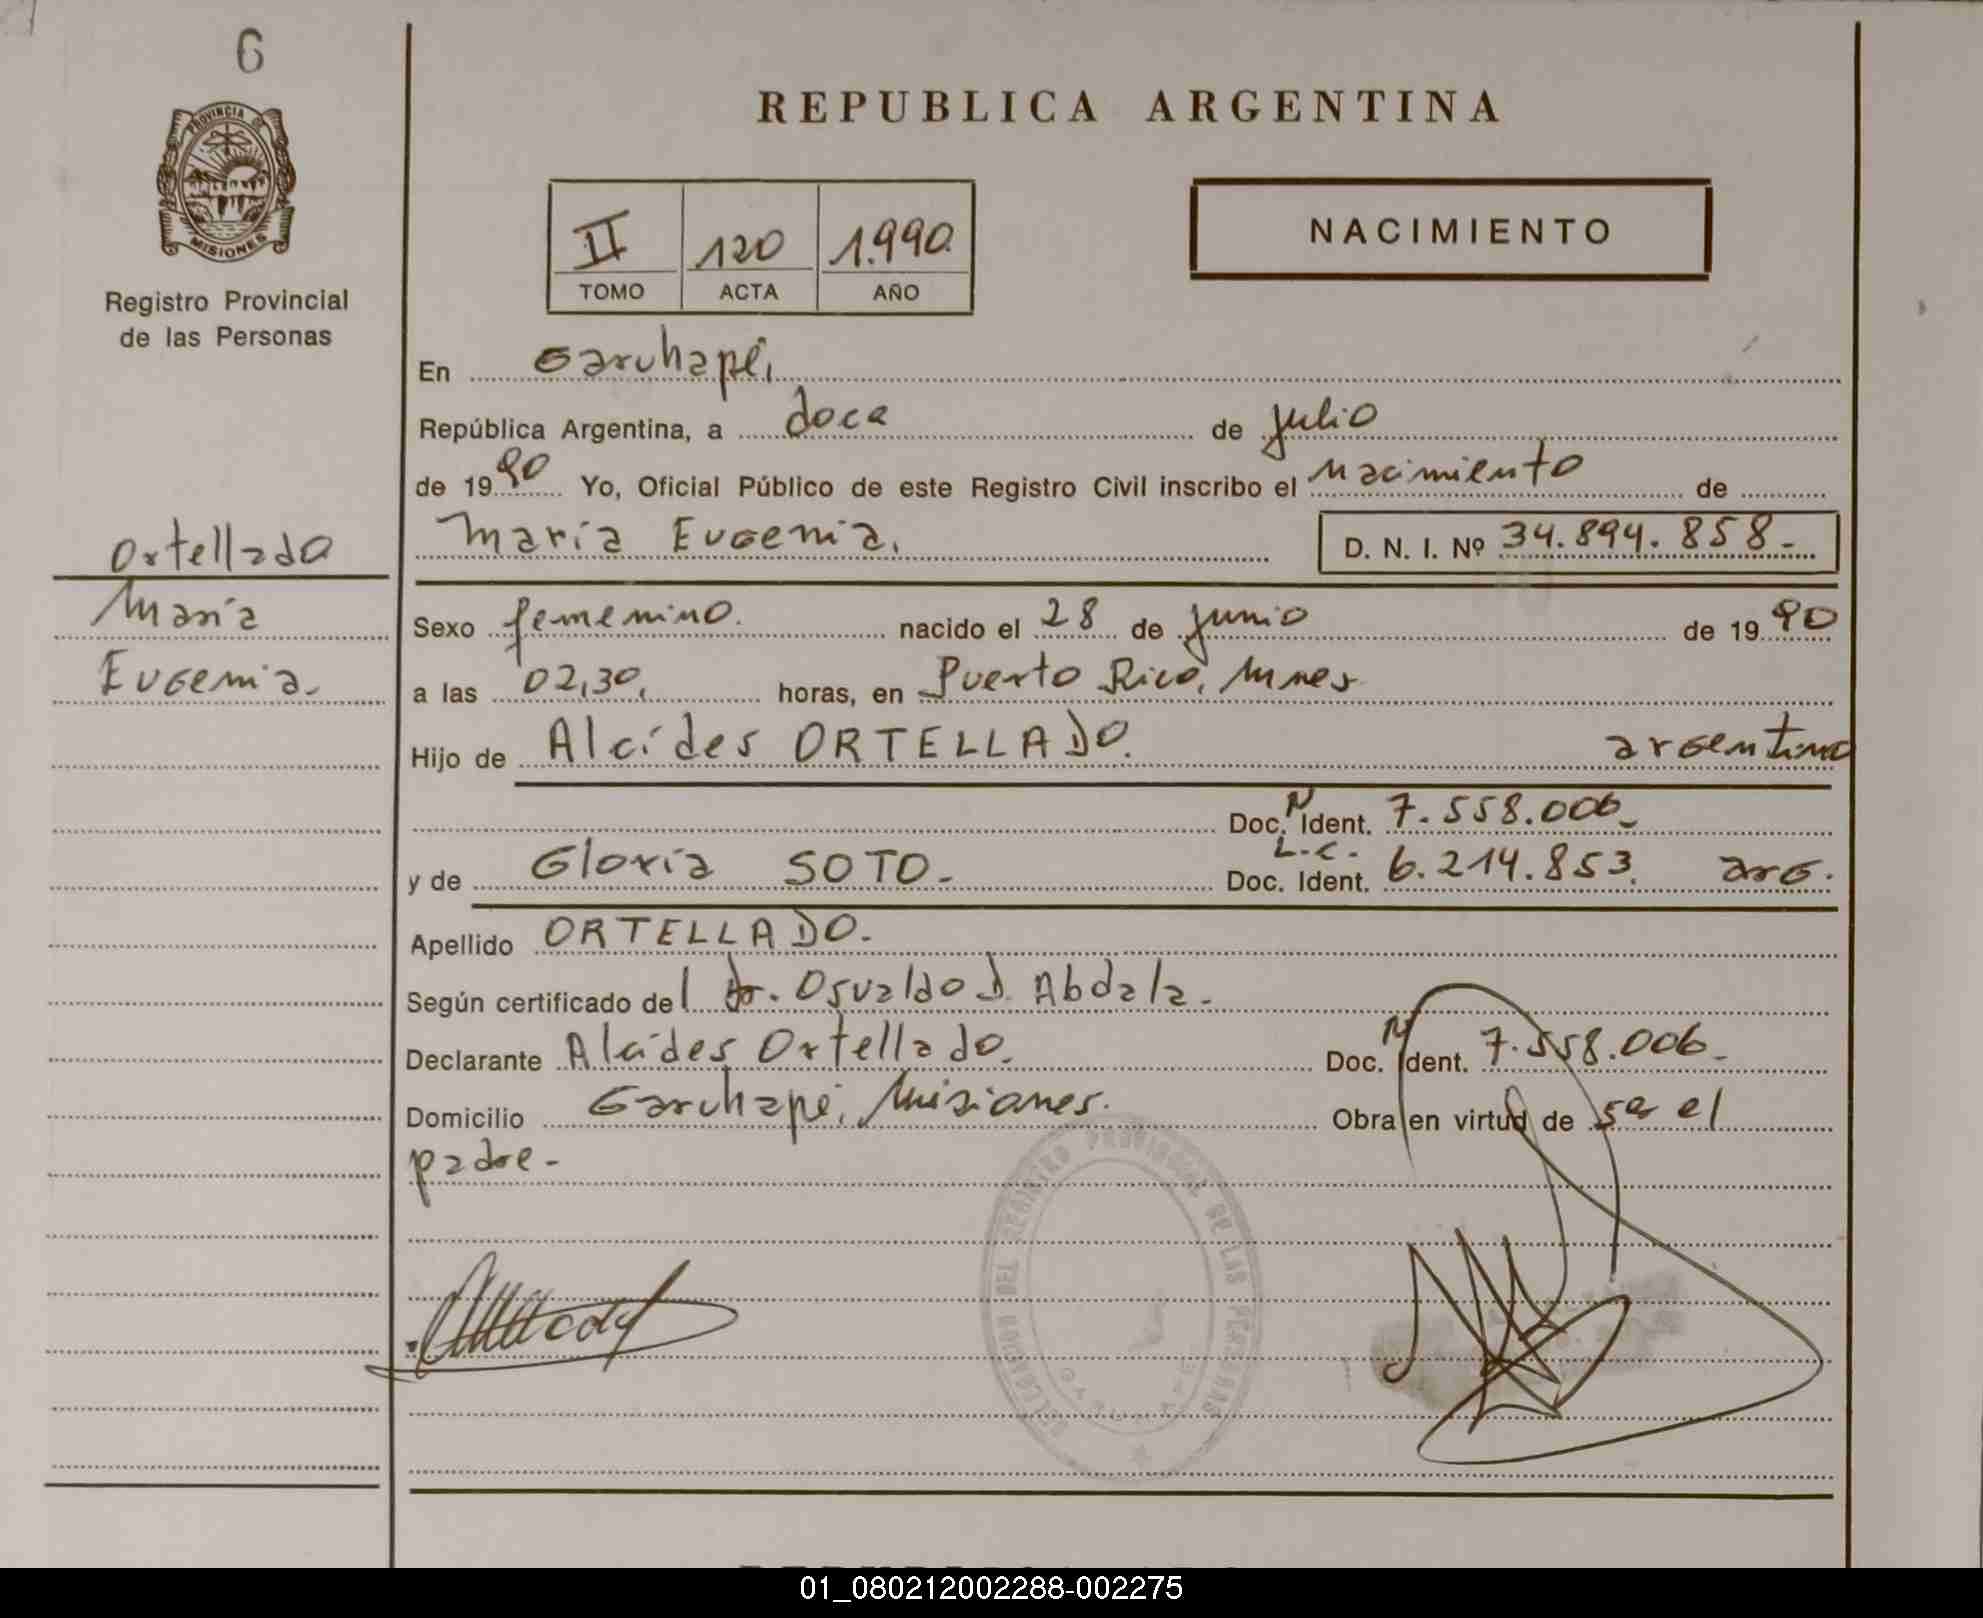 6
PROVINCIA DE
MISIONES
Registro Provincial
de las Personas
REPUBLICA ARGENTINA
II 120 1.990
TOMO ACTA AÑO
NACIMIENTO
En Garuhapé,
República Argentina, a doce de julio
de 1990 Yo, Oficial Público de este Registro Civil inscribo el nacimiento de
María Eugenia. D. N. I. Nº 34.894.858-
Ortellado
María
Eugenia.
Sexo femenino. nacido el 28 de junio de 1990
a las 02,30, horas, en Puerto Rico, Mnes
Hijo de Alcídes ORTELLADO. argentino
Doc. Ident. 7.558.006-
y de Gloria SOTO- L.C. Doc. Ident. 6.214.853. arg.
Apellido ORTELLADO-
Según certificado del Dr. Osvaldo D. Abdala-
Declarante Alcídes Ortellado. Doc. Ident. 7.558.006-
Domicilio Garuhapé, Misiones. Obra en virtud de ser el
padre-
DELEGACION DEL REGISTRO PROVINCIAL DE LAS PERSONAS
01_080212002288-002275